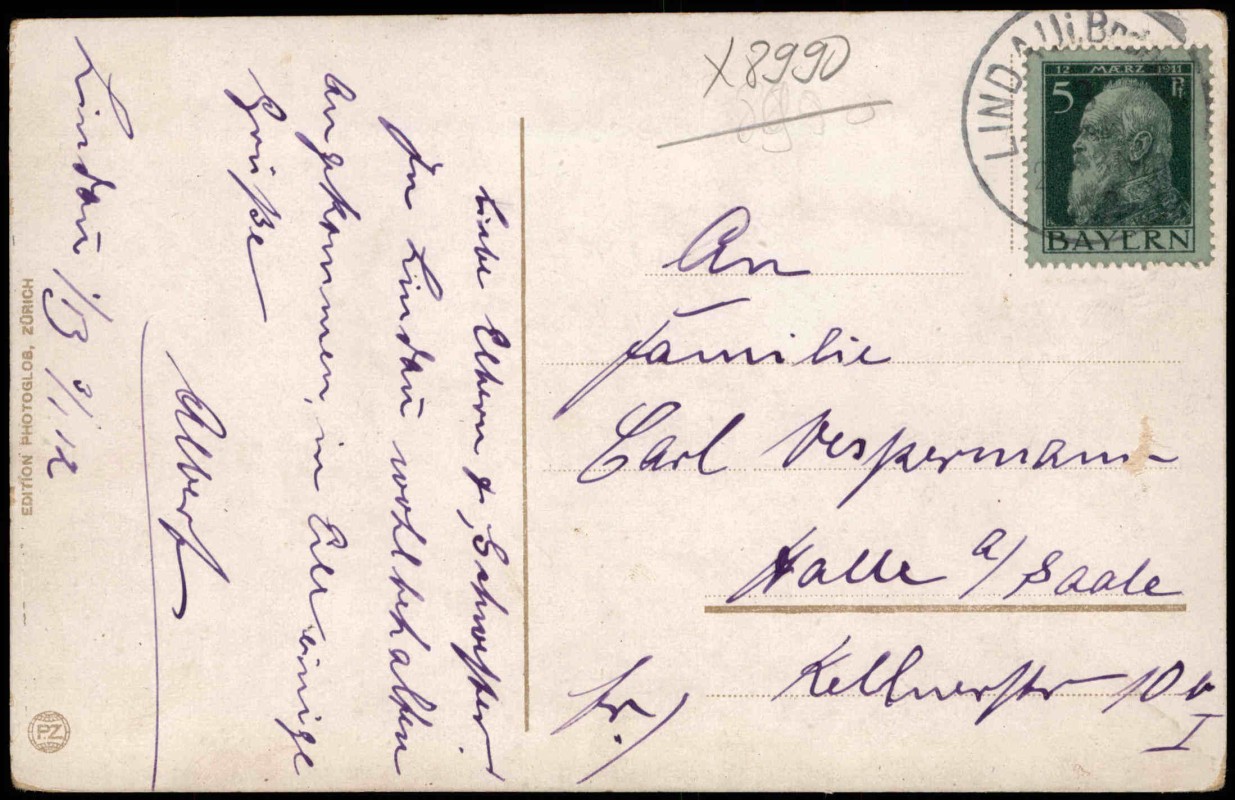 Lindau i/B 3/1,12
Liebe Eltern & Schwester.
In Lindau wohlbehalten
angekommen, in Eile einige
Grüße
Albert
X8990
LINDAU i. Bod
12 MÆRZ 1911
5 Pf
BAYERN
An
Familie
Carl Vespermann
Halle a/ Saale
Kellnerstr 10a
I
fr.)
EDITION PHOTOGLOB, ZÜRICH
P.Z.